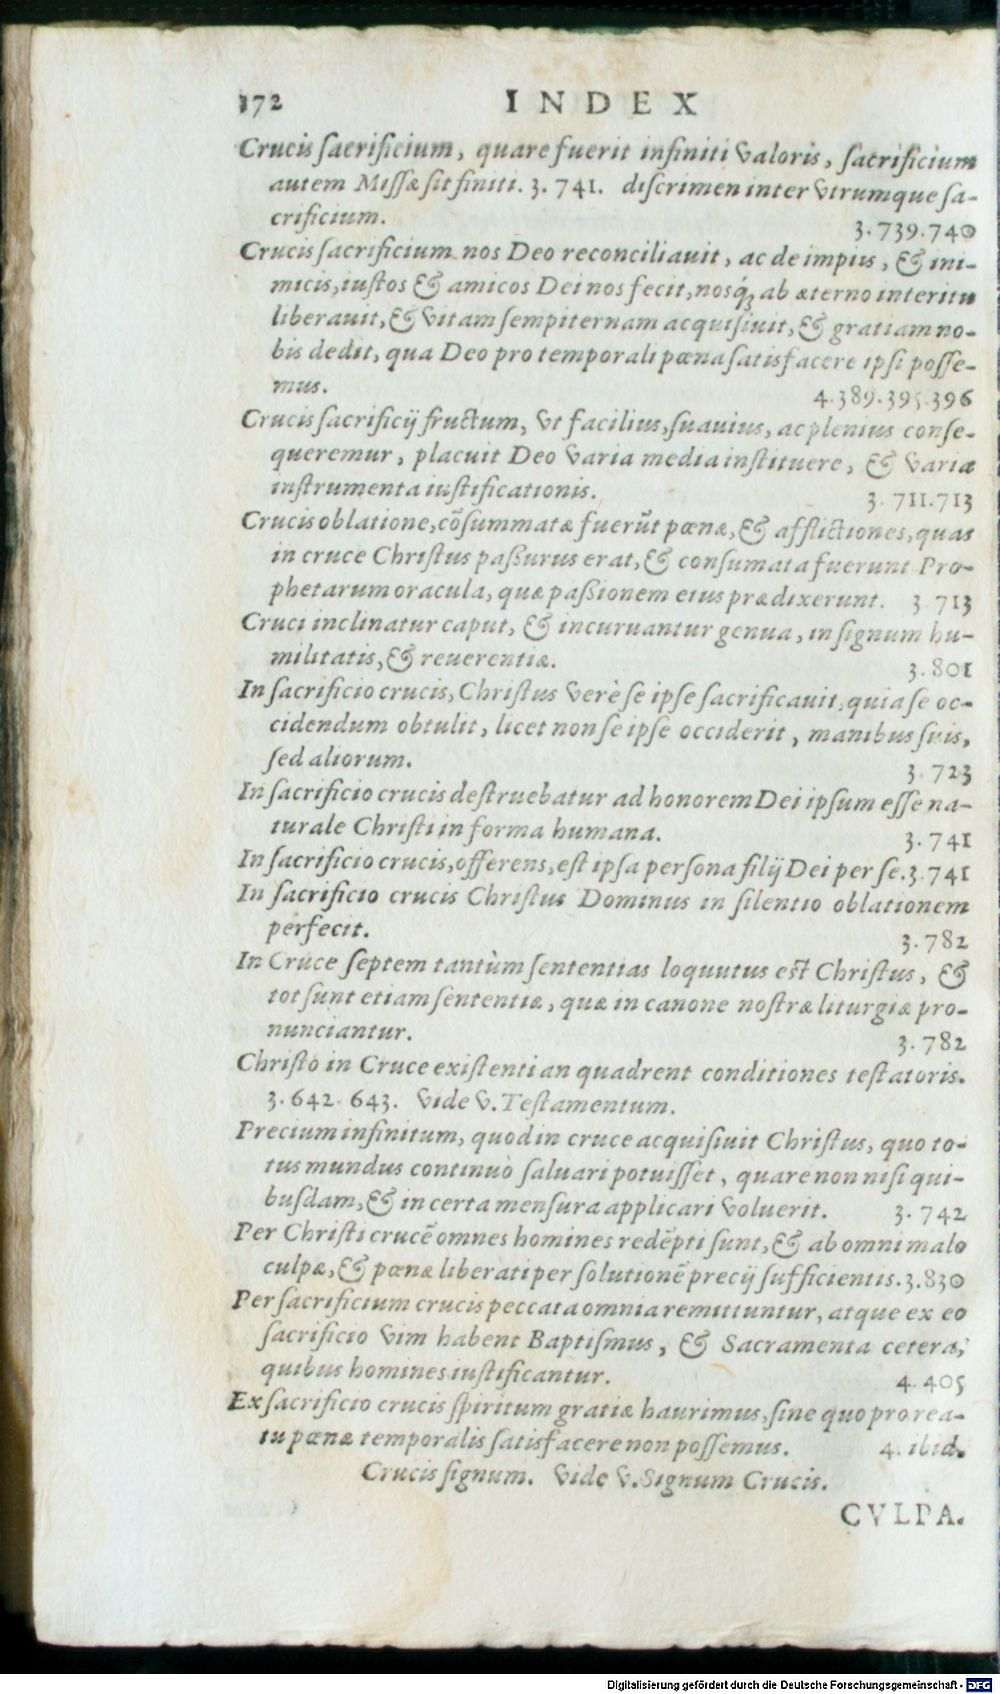 172 INDEX
Crucis sacrificium, quare fuerit infiniti valoris, sacrificium
autem Missæ sit finiti. 3. 741. discrimen inter vtrumque sa-
crificium. 3. 739. 740
Crucis sacrificium nos Deo reconciliauit, ac de impiis, & ini-
micis, iustos & amicos Dei nos fecit, nosq́; ab æterno interitu
liberauit, & vitam sempiternam acquisiuit, & gratiam no-
bis dedit, qua Deo pro temporali pœna satisfacere ipsi posse-
mus. 4. 389. 395. 396
Crucis sacrificij fructum, vt facilius, suauius, ac plenius conse-
queremur, placuit Deo varia media instituere, & varia
instrumenta iustificationis. 3. 711. 713
Crucis oblatione, cõsummatæ fuerũt pœnæ, & afflictiones, quas
in cruce Christus passurus erat, & consumata fuerunt Pro-
phetarum oracula, quæ passionem eius prædixerunt. 3 713
Cruci inclinatur caput, & incuruantur genua, in signum hu-
militatis, & reuerentiæ. 3. 801
In sacrificio crucis, Christus verè se ipse sacrificauit, quia se oc-
cidendum obtulit, licet non se ipse occiderit, manibus suis,
sed aliorum. 3. 723
In sacrificio crucis destruebatur ad honorem Dei ipsum esse na-
turale Christi in forma humana. 3. 741
In sacrificio crucis, offerens, est ipsa persona filij Dei per se. 3. 741
In sacrificio crucis Christus Dominus in silentio oblationem
perfecit. 3. 782
In Cruce septem tantùm sententias loquutus est Christus, &
tot sunt etiam sententiæ, quæ in canone nostræ liturgiæ pro-
nunciantur. 3. 782
Christo in Cruce existenti an quadrent conditiones testatoris.
3. 642. 643. vide v. Testamentum.
Precium infinitum, quod in cruce acquisiuit Christus, quo to-
tus mundus continuò saluari potuisset, quare non nisi qui-
busdam, & in certa mensura applicari voluerit. 3. 742
Per Christi crucẽ omnes homines redẽpti sunt, & ab omni malo
culpæ, & pœnæ liberati per solutionẽ precij sufficientis. 3. 830
Per sacrificium crucis peccata omnia remittuntur, atque ex eo
sacrificio vim habent Baptismus, & Sacramenta cetera,
quibus homines iustificantur. 4. 405
Ex sacrificio crucis spiritum gratiæ haurimus, sine quo pro rea-
tu pœnæ temporalis satisfacere non possemus. 4. ibid.
Crucis signum. vide v. Signum Crucis.
CVLPA.
Digitalisierung gefördert durch die Deutsche Forschungsgemeinschaft - DFG